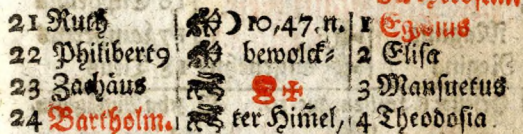 21 Ruth ☽ 10,47.n. 1 Egidius
22 Philibert9 bewolck⸗ 2 Elisa
23 Zachäus 3 Mansuetus
24 Bartholm. ter Him̃el, 4 Theodosia